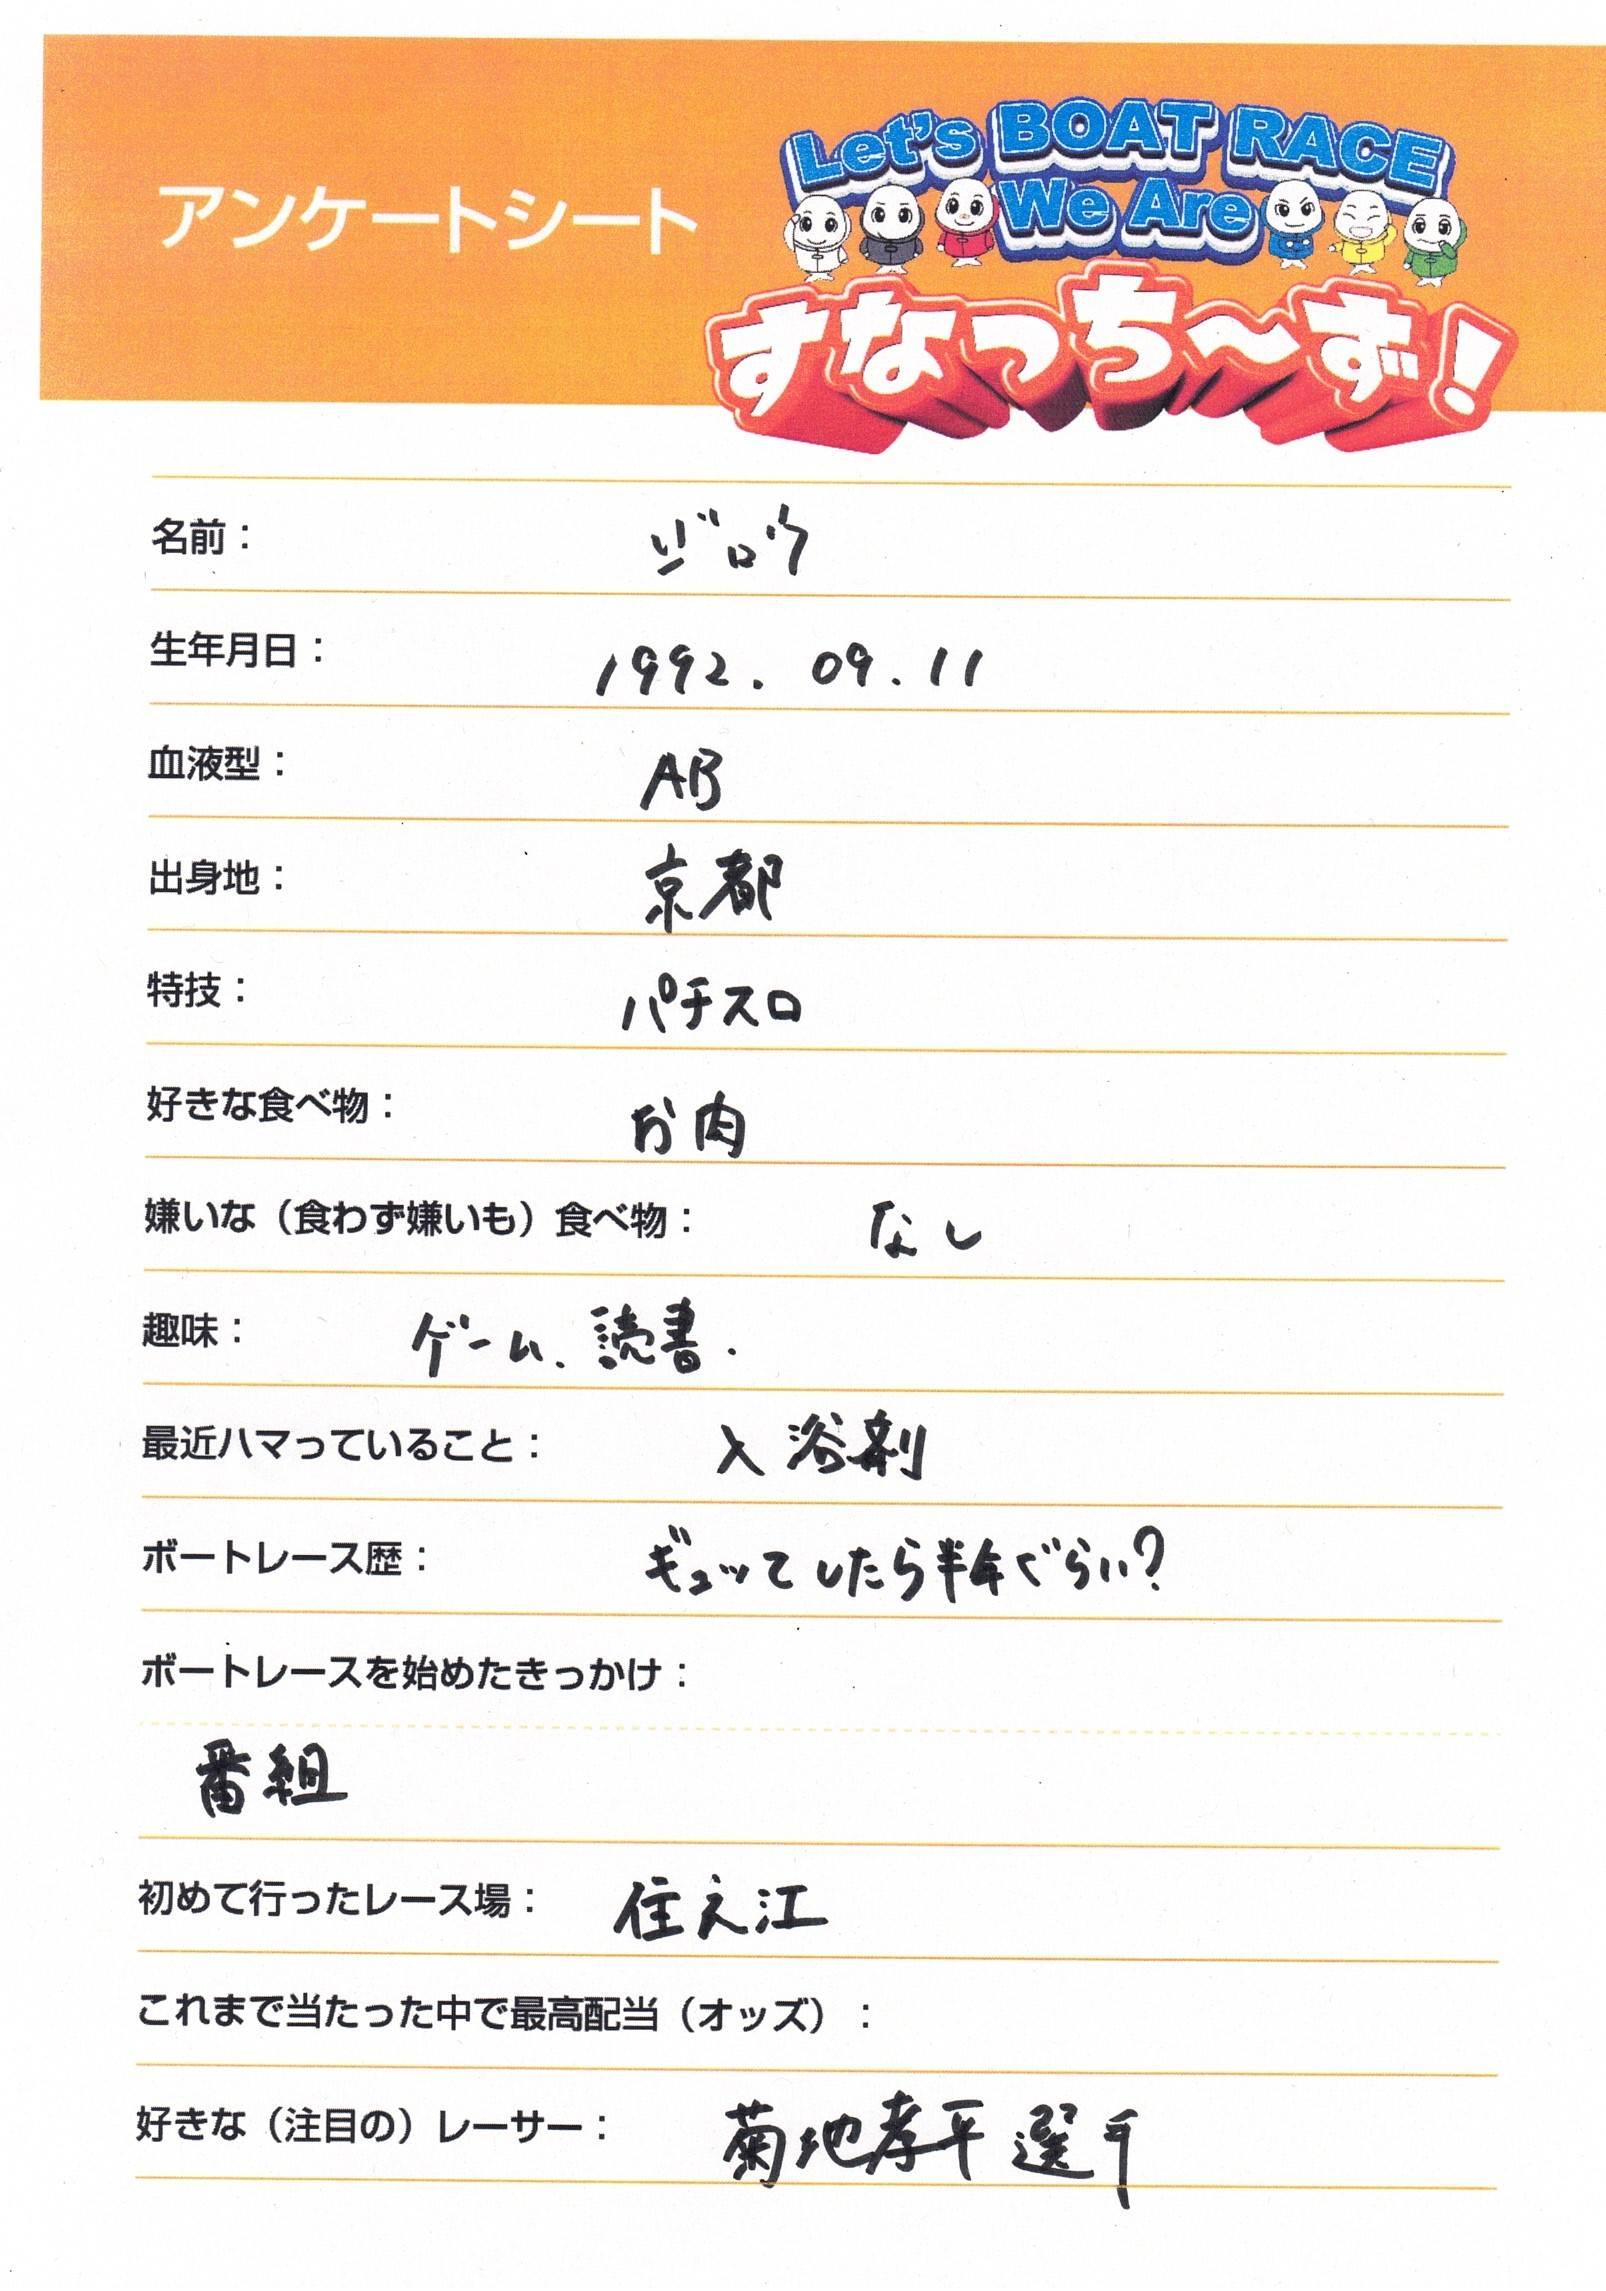 アンケートシート
Let's BOAT RACE
We Are
すなっち～ず！
名前： ジロウ
生年月日： 1992. 09. 11
血液型： AB
出身地： 京都
特技： パチスロ
好きな食べ物： お肉
嫌いな（食わず嫌いも）食べ物： なし
趣味： ゲーム、読書.
最近ハマっていること： 入浴剤
ボートレース歴： ギュッてしたら半年ぐらい？
ボートレースを始めたきっかけ：
番組
初めて行ったレース場： 住之江
これまで当たった中で最高配当（オッズ）：
好きな（注目の）レーサー： 菊地孝平選手